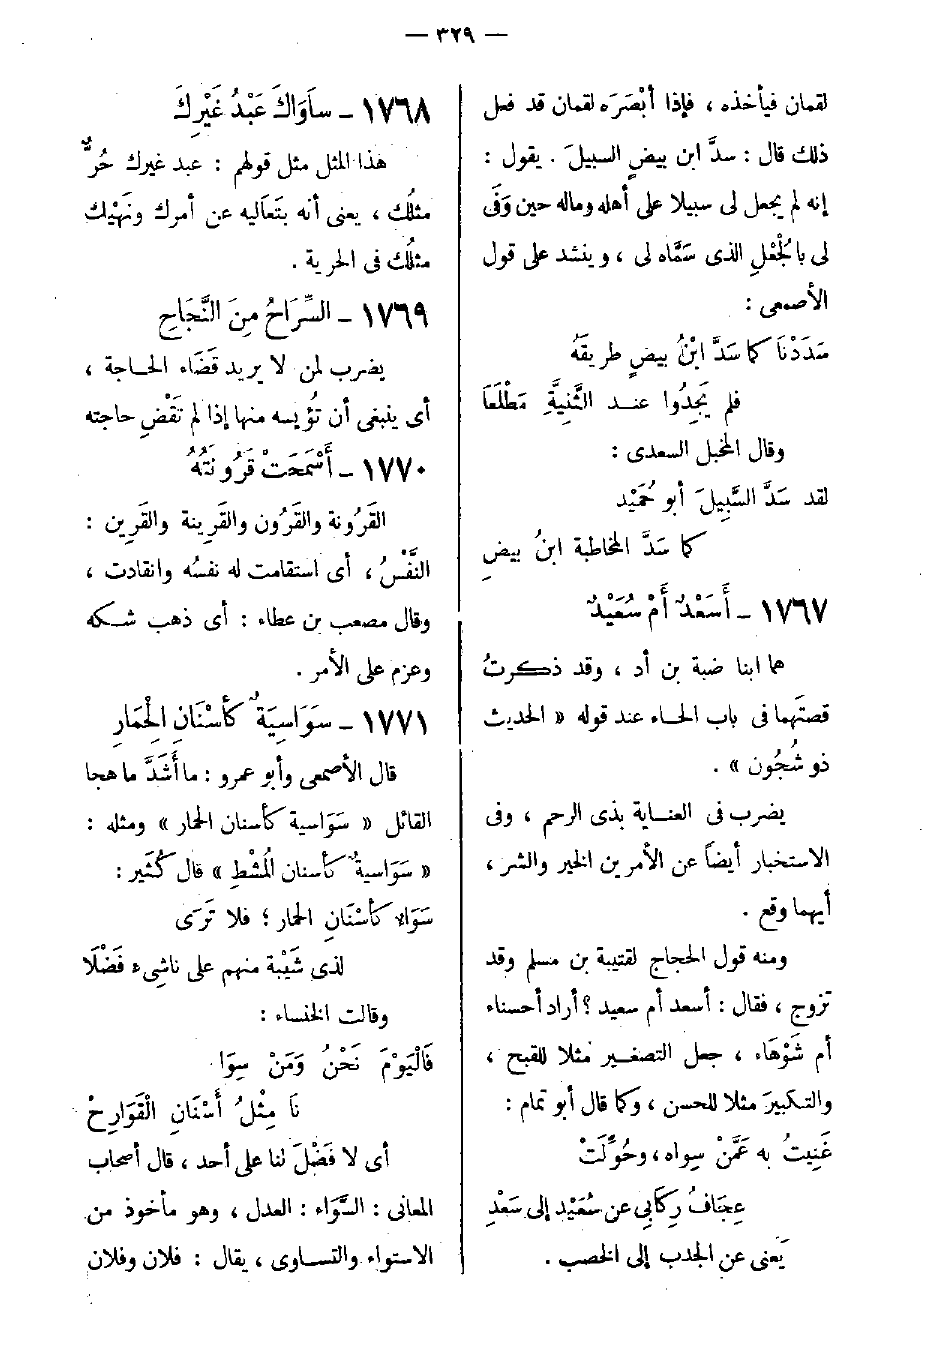 — ٣٢٩ —
لقمان فيأخذه ، فإذا أبْصَرَه لقمان قد فعل
ذلك قال : سدَّ ابن بيضٍ السبيلَ . يقول :
إنه لم يجعل لى سبيلا على أهله وماله حين وَفَى
لى بالجُعْلِ الذى سَمَّاه لى ، وينشد على قول
الأصمعى :
سَدَدْنَا كما سَدَّ ابْنُ بيضٍ طريقَهُ
فلم يَجِدُوا عنـد الثَّنِيَّةِ مَطْلَعَا
وقال المخبل السعدى :
لقد سَدَّ السَّبِيلَ أبو حُمَيْد
كما سَدَّ المخاطبة ابنُ بيضِ
١٧٦٧ - أَسَعْدٌ أَمْ سُعَيْدٌ
هما ابنا ضبة بن أد ، وقد ذكرتُ
قصتَهما فى باب الحاء عند قوله « الحديث
ذو شُجُون » .
يضرب فى العناية بذى الرحم ، وفى
الاستخبار أيضاً عن الأمرين الخير والشر ،
أيهما وقع .
ومنه قول الحجاج لقتيبة بن مسلم وقد
تزوج ، فقال : أسعد أم سعيد ؟ أراد أحسناء
أم شَوْهَاء ، جعل التصغير مثلا للقبح ،
والتكبيرَ مثلا للحسن ، وكما قال أبو تمام :
غَنِيتُ به عَمَّنْ سِواه ، وحُوِّلَتْ
عِجَافُ رِكَابِى عن سُعَيْد إلى سَعْدِ
يَعنى عن الجدب إلى الخصب .
١٧٦٨ - سَاوَاكَ عَبْدُ غَيْرِكَ
هذا المثل مثل قولهم : عبد غيرك حُرٌّ
مثلُك ، يعنى أنه بتَعَاليه عن أمرك ونَهْيِك
مثلُك فى الحرية .
١٧٦٩ - السِّرَاحُ مِنَ النَّجَاحِ
يضرب لمن لا يريد قَضَاء الحاجة ،
أى ينبغى أن تُؤيسه منها إذا لم تَقْضِ حاجته
١٧٧٠ - أَسْمَحَتْ قَرُونَتُهُ
القَرُونة والقَرُون والقَرِينة والقَرِين :
النَّفْسُ ، أى استقامت له نفسُه وانقادت ،
وقال مصعب بن عطاء : أى ذهب شـكه
وعزم على الأمر .
١٧٧١ - سَوَاسِيَةٌ كَأَسْنَانِ الْحِمَارِ
قال الأصمعى وأبو عمرو : ما أَشَدَّ ما هجا
القائل « سَوَاسية كأسنان الحمار » ومثله :
« سَوَاسيةٌ كأسنان المُشْطِ » قال كُثَير :
سَوَاء كأسْنَانِ الحمار ؛ فلا تَرَى
لذى شَيْبة منهم على ناشِىء فَضْلَا
وقالت الخنساء :
فَالْيَوْمَ نَحْنُ وَمَنْ سِوَا
نَا مِثْلُ أَسْنَانِ الْقَوَارِحْ
أى لا فَضْلَ لنا على أحد ، قال أصحاب
المعانى : السَّوَاء : العدل ، وهو مأخوذ من
الاستواء والتساوى ، يقال : فلان وفلان